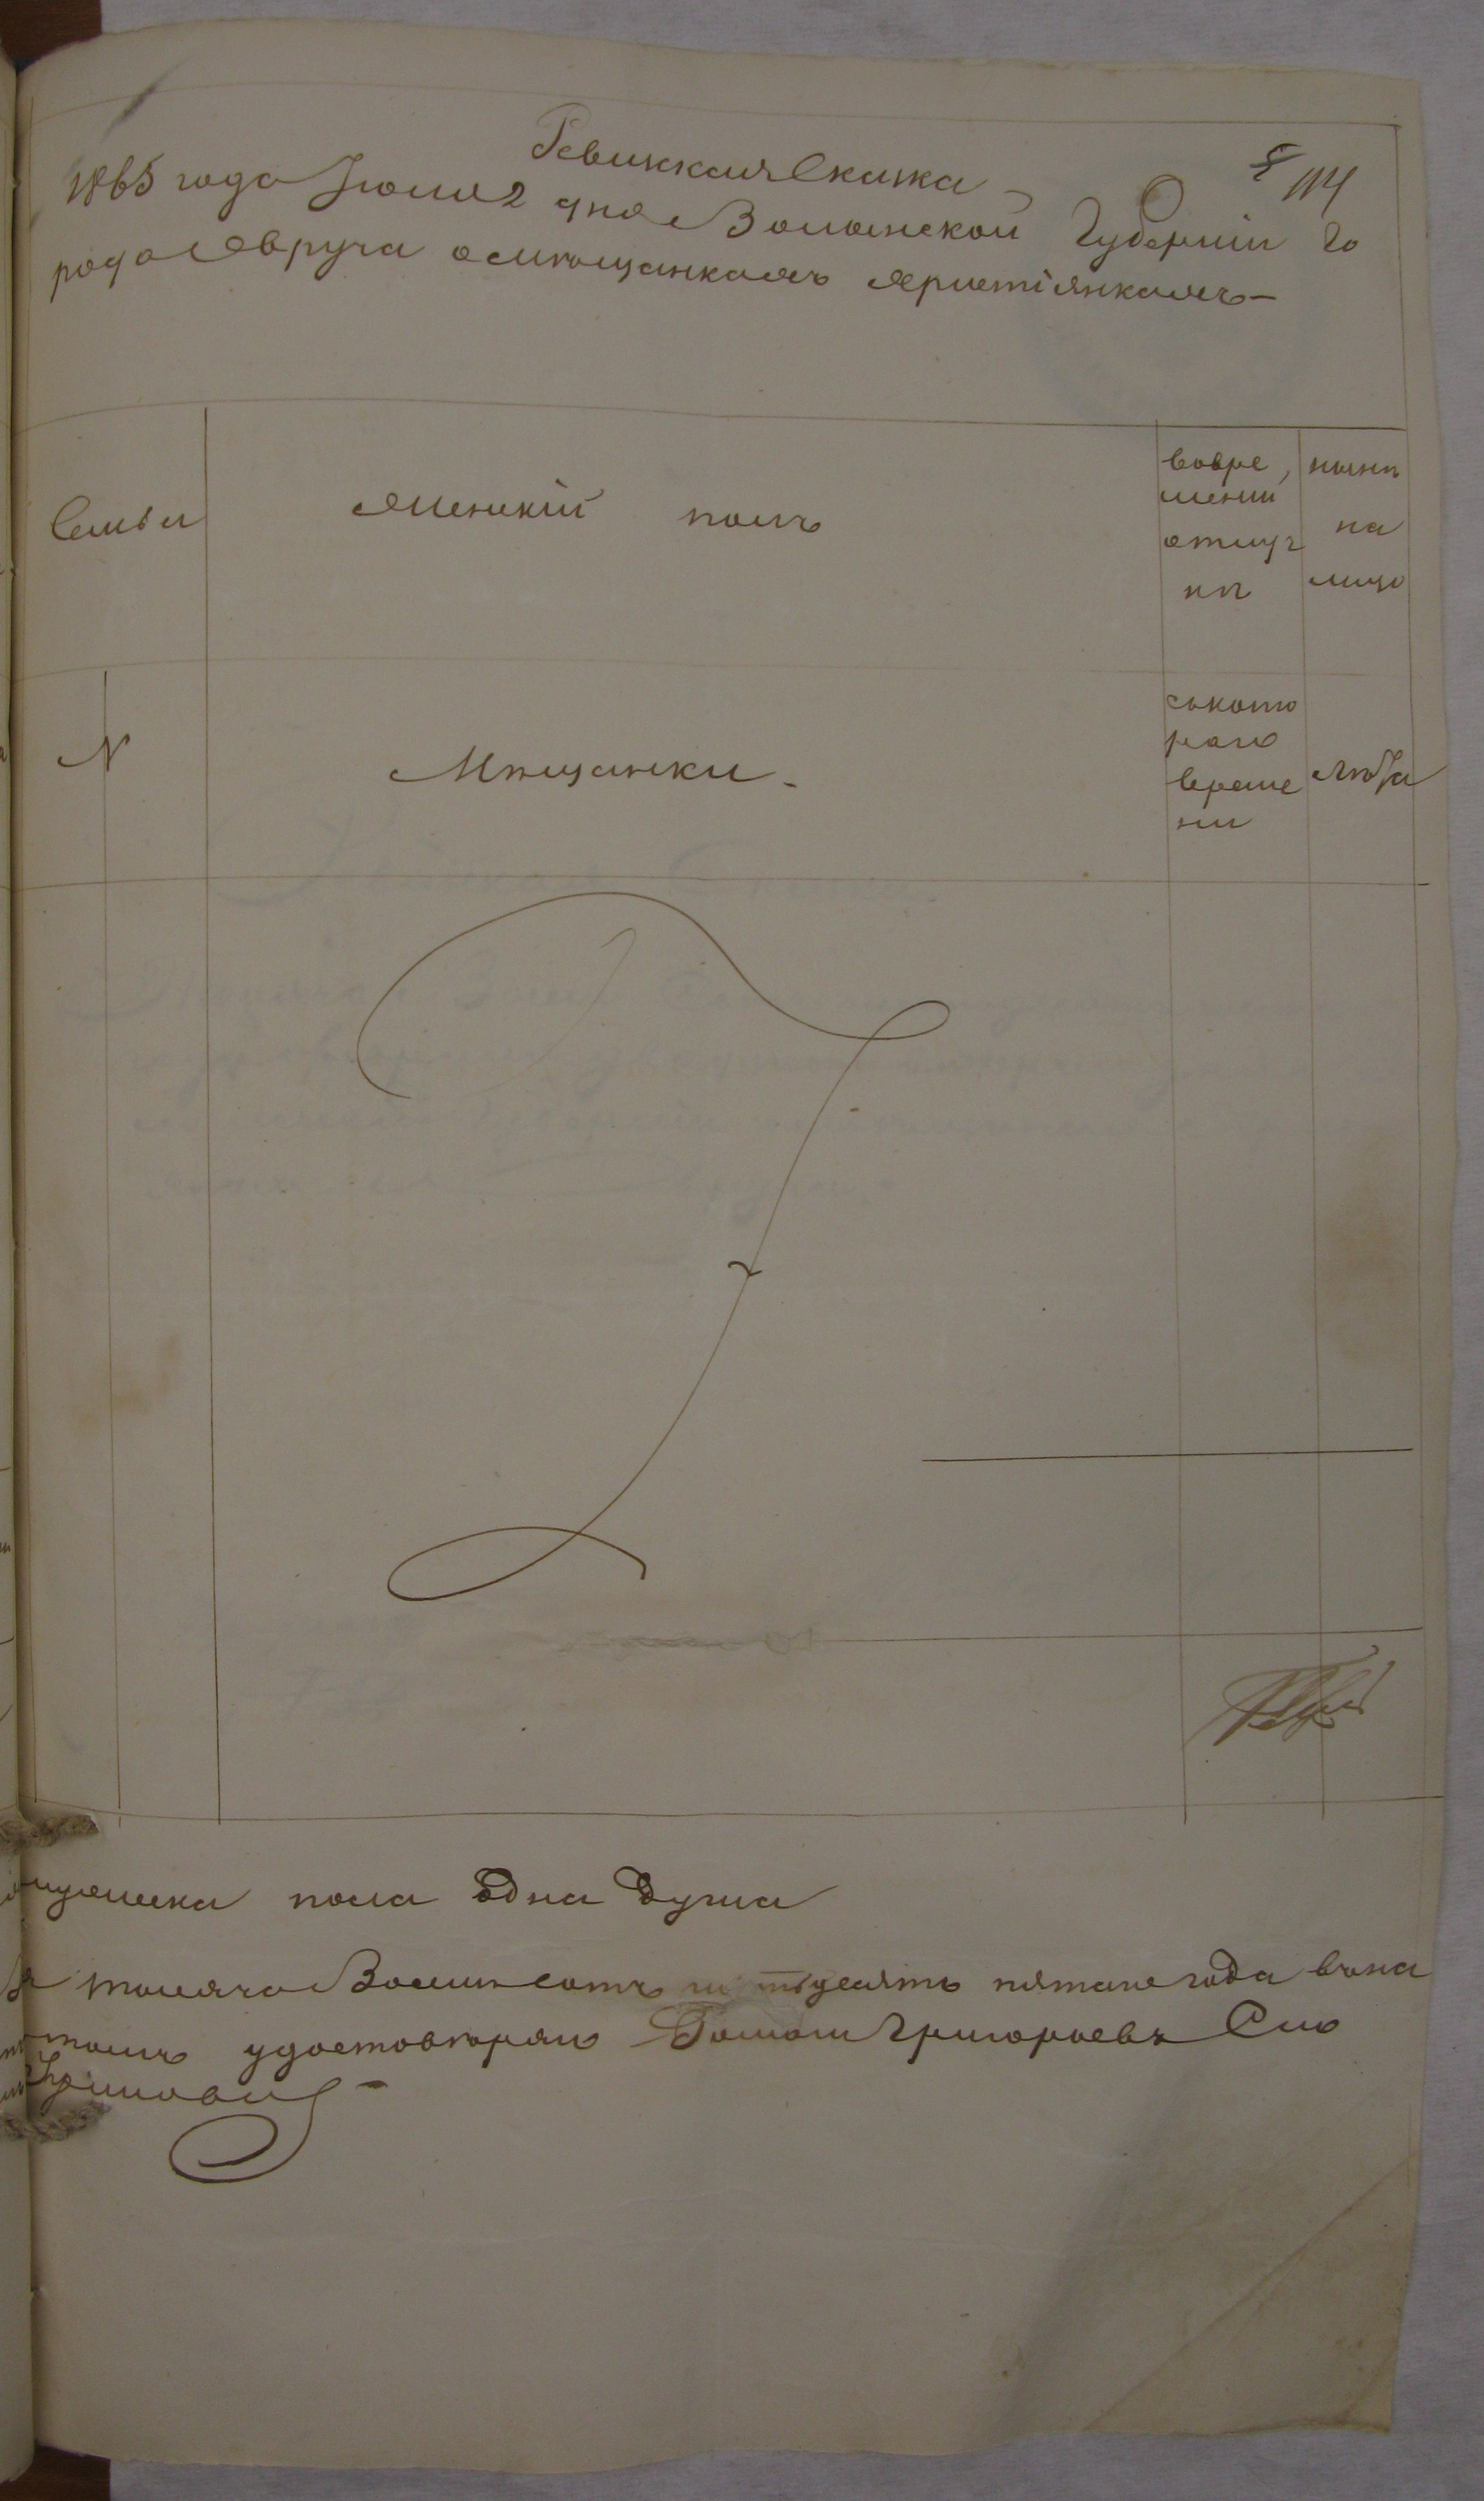 Ревизкая Скаска
5 114
1865 года Июля 2 дня Волынской Губернии Го
рода Овруча о мѣщанкахъ христіянкахъ
Семьи
женскій полъ
вовре
мении
отлуч
кѣ
нынѣ
на
лицо
№
Мѣщанки
сЪкото
раго
време
ни
лѣта
мужеска пола Одна Душа
тысяча Восимсотъ шистьдесятъ пятаго года въчна
томъ удостовѣряю Томаш Григорьевъ Сио